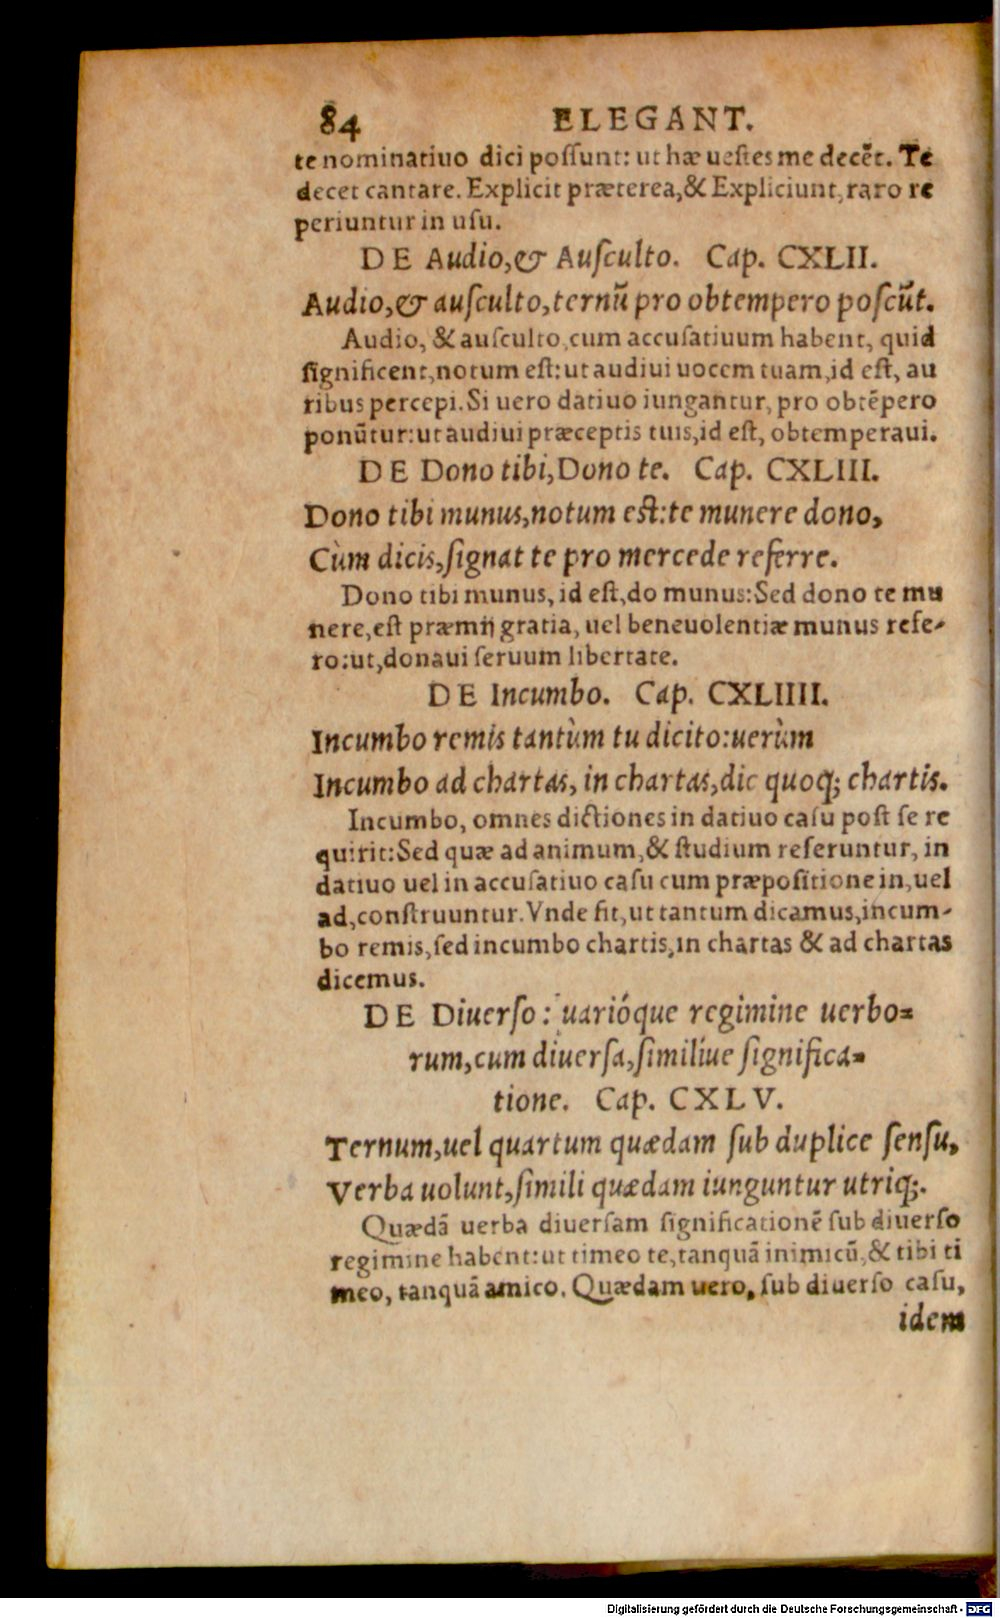 84 ELEGANT.
te nominatiuo dici possunt: ut hæ uestes me decẽt. Te
decet cantare. Explicit præterea,& Expliciunt, raro re
periuntur in usu.
DE Audio,& Ausculto. Cap. CXLII.
Audio,& ausculto,ternũ pro obtempero poscũt.
Audio, & ausculto,cum accusatiuum habent, quid
significent,notum est:ut audiui uocem tuam,id est, au
ribus percepi.Si uero datiuo iungantur, pro obtẽpero
ponũtur:ut audiui præceptis tuis,id est, obtemperaui.
DE Dono tibi,Dono te. Cap. CXLIII.
Dono tibi munus,notum est:te munere dono,
Cùm dicis,signat te pro mercede referre.
Dono tibi munus, id est,do munus:Sed dono te mu
nere,est præmij gratia, uel beneuolentiæ munus refe-
ro:ut,donaui seruum libertate.
DE Incumbo. Cap. CXLIIII.
Incumbo remis tantùm tu dicito:uerùm
Incumbo ad chartas, in chartas,dic quoq; chartis.
Incumbo, omnes dictiones in datiuo casu post se re
quirit:Sed quæ ad animum,& studium referuntur, in
datiuo uel in accusatiuo casu cum præpositione in,uel
ad,construuntur.Vnde fit,ut tantum dicamus,incum-
bo remis,sed incumbo chartis,in chartas & ad chartas
dicemus.
DE Diuerso: uarióque regimine uerbo=
rum,cum diuersa,similíue significa=
tione. Cap. CXLV.
Ternum,uel quartum quædam sub duplice sensu,
Verba uolunt,simili quædam iunguntur utriq;.
Quædã uerba diuersam significationẽ sub diuerso
regimine habent:ut timeo te,tanquã inimicũ,& tibi ti
meo, tanquã amico. Quædam uero, sub diuerso casu,
idem
Digitalisierung gefördert durch die Deutsche Forschungsgemeinschaft - DFG